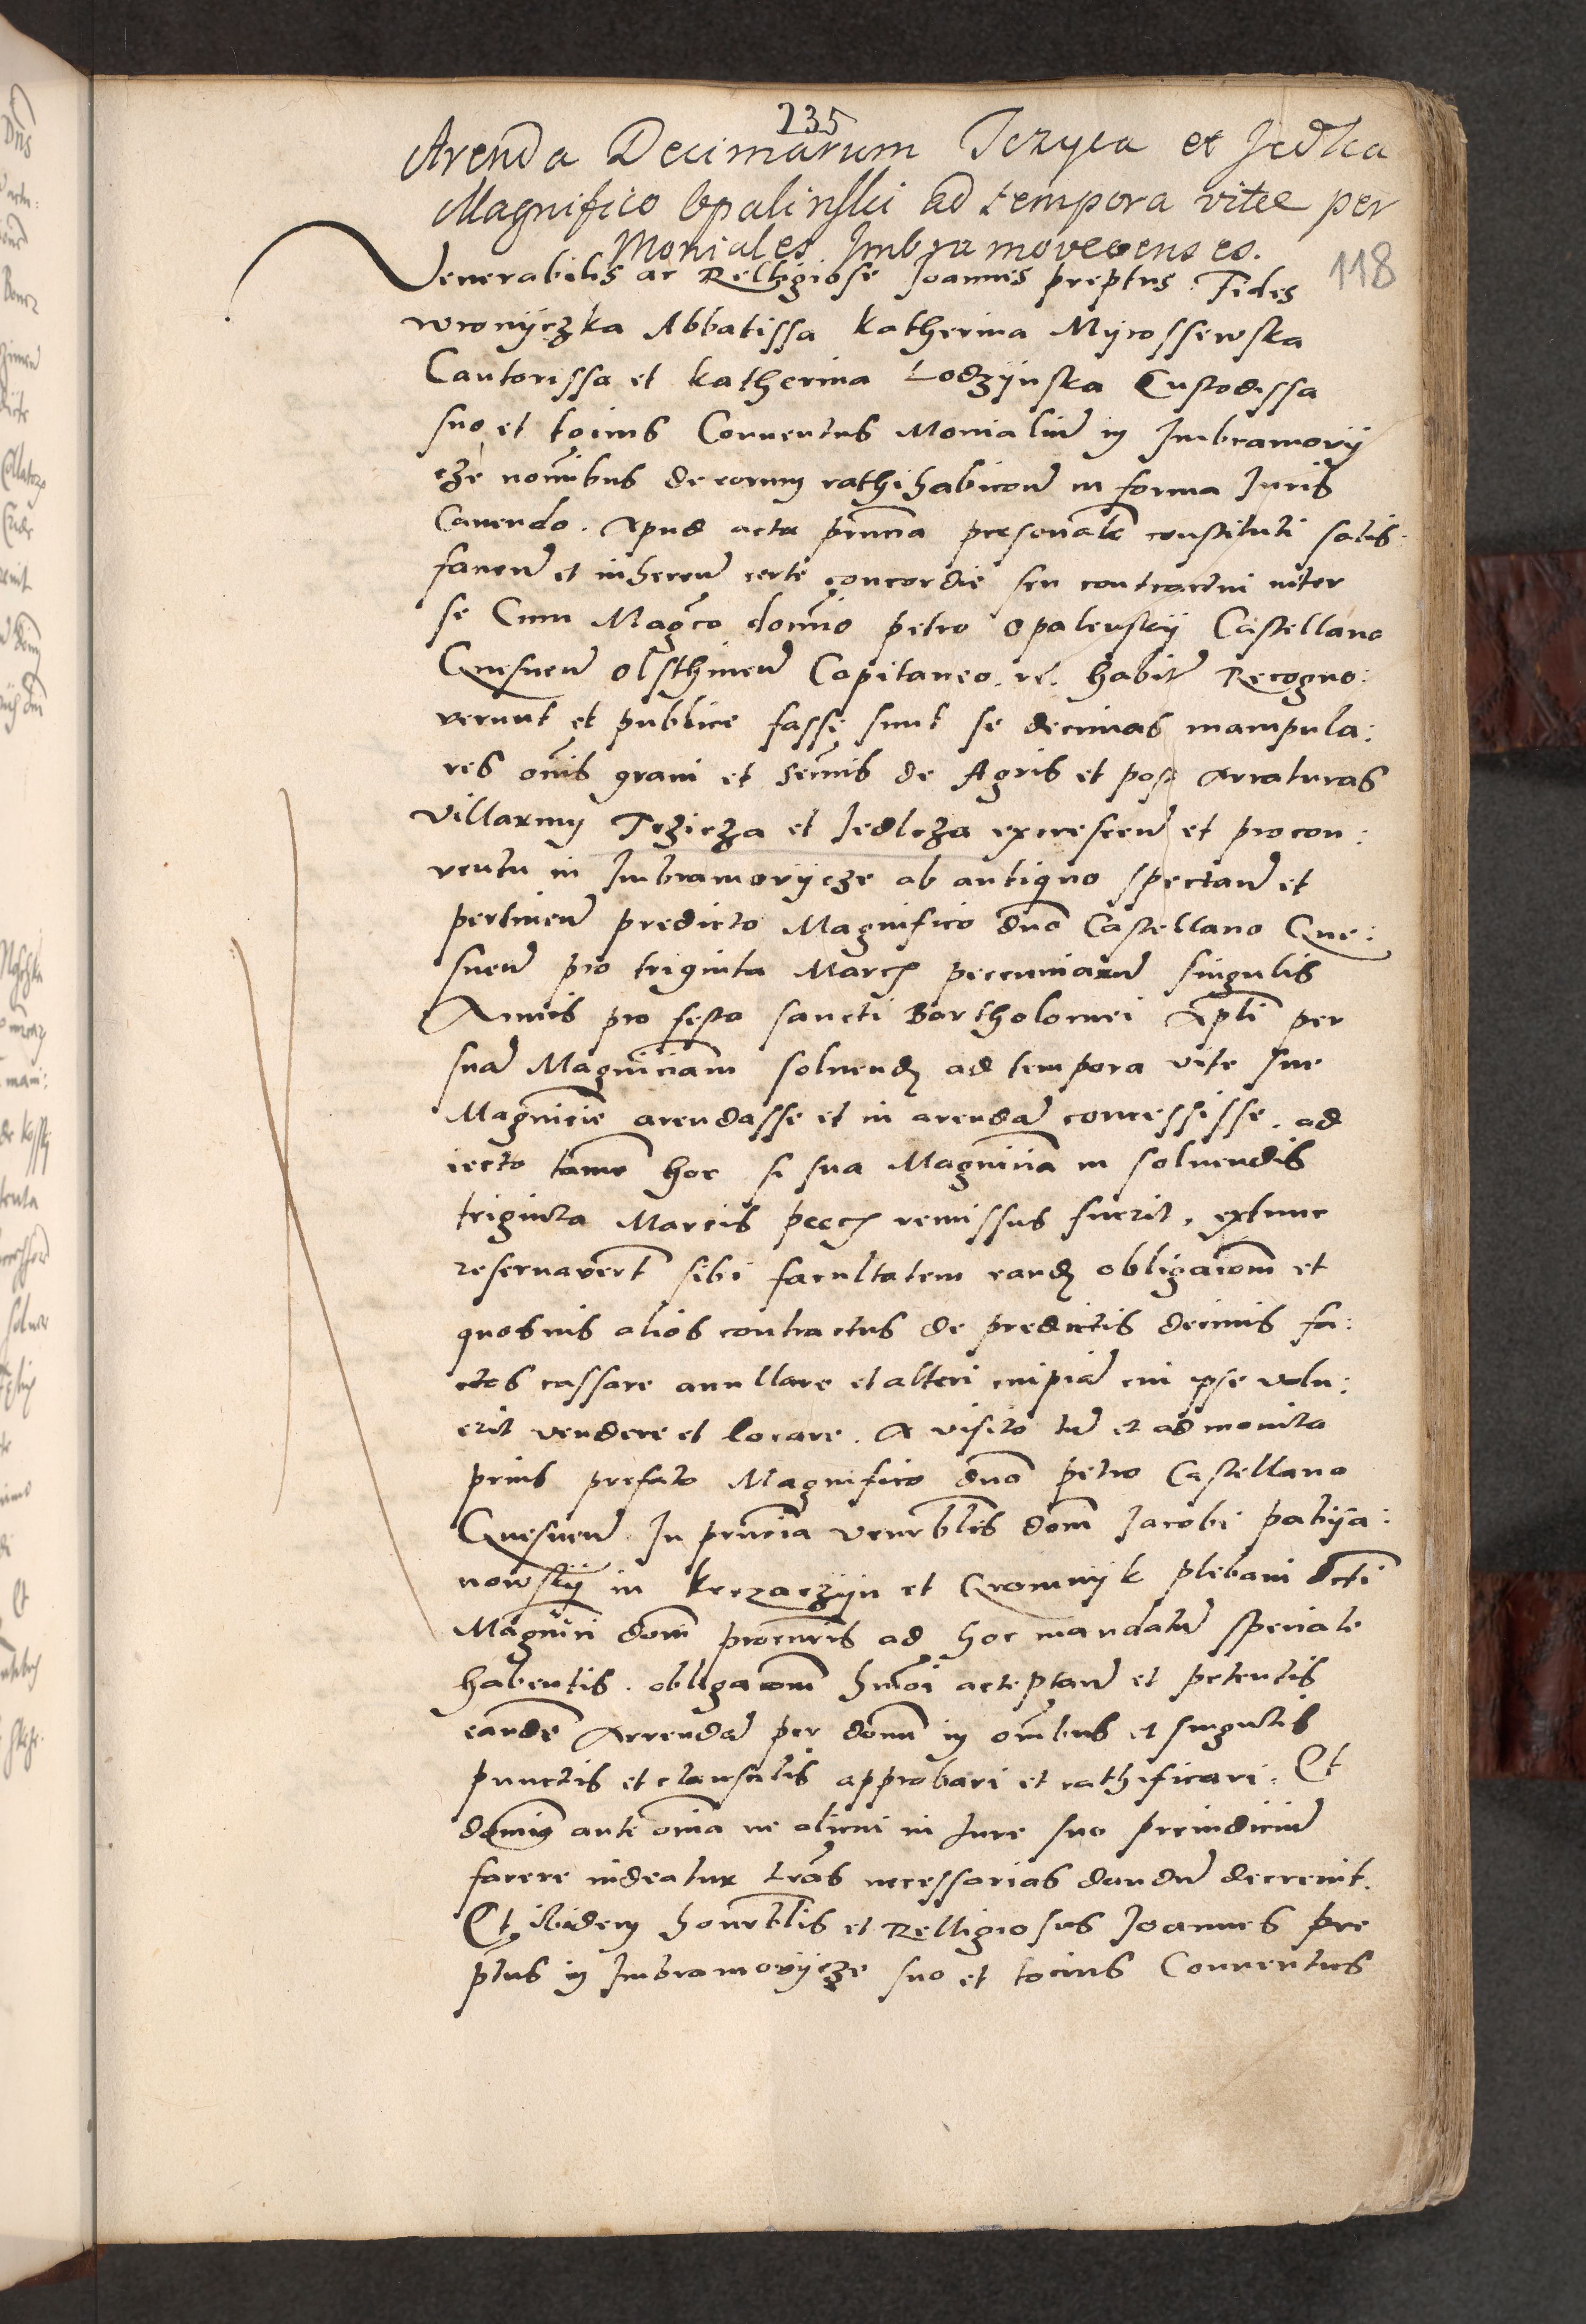 235
Arenda Decimarum Tczyca et Jedlca
Magnifico Opalinski ad tempora vitæ per
Moniales Imbramovecenses.
118
Venerabilis ac Relligiose Joannes preptus Fides
wronyczka Abbatissa Katherina Myrossewska
Cantorissa et Katherina Lodzynska Custodissa
suo et toius Conuentus Monialiu in Imbramovy
cze noibus de eorum rathihabicone in forma Juris
Cauendo. Apud acta prncia personalr constituti satis:
facien et inheren certe concordie seu contractui inter
se Cum Magco domio petro Opalensky Castellano
Gnesnen Olsthinen Capitaneo. habit Recogno:
verunt et publice fasse sunt se decimas manipula:
res ois grani et semis de Agris et post Araturas
villarum Tczicza et Jedlcza excrescen et pro con:
ventu in Imbramovycze ab antiquo spectan et
pertinen predicto Magnifico dno Castellano Gne:
snen pro triginta Marc pecuniaru singulis
Annis pro festo sancti Bartholomei Apli per
sua Magniciam soluend ad tempora vite sue
Magnicie arendasse et in arenda concessisse. ad
iecto tame hoc si sua Magnicia in soluendis
triginta Marcis pec remissus fuerit, extunc
reseruavert sibi facultatem eand obligacom et
quosuis alios contractus de predictis decimis fa:
ctos cassare anullare et alteri cuipia cui ipse volu:
erit vendere et locare. A visito tn et admonito
prius prefato Magnifico dno petro Castellano
Gnesnen. In prncia venerblis dom Jacobi pabya:
nowsky in Krzaczyn et Gromnyk plebani dcti
Magnici dom procuris ad hoc mandatu speciale
habentis. obligacom hmoi acceptan et petentis
eande Arrenda per domu in oibus et singulis
punctis et clausulis approbari et rathificari. Et
doming ante oia ne alicui in Jure suo preiudiciu
facere videatur lras necessarias dandu decreuit.
Et ibidem honorblis et Relligiosus Joannes pre
ptus in Imbramovycze suo et tocius Conuentus